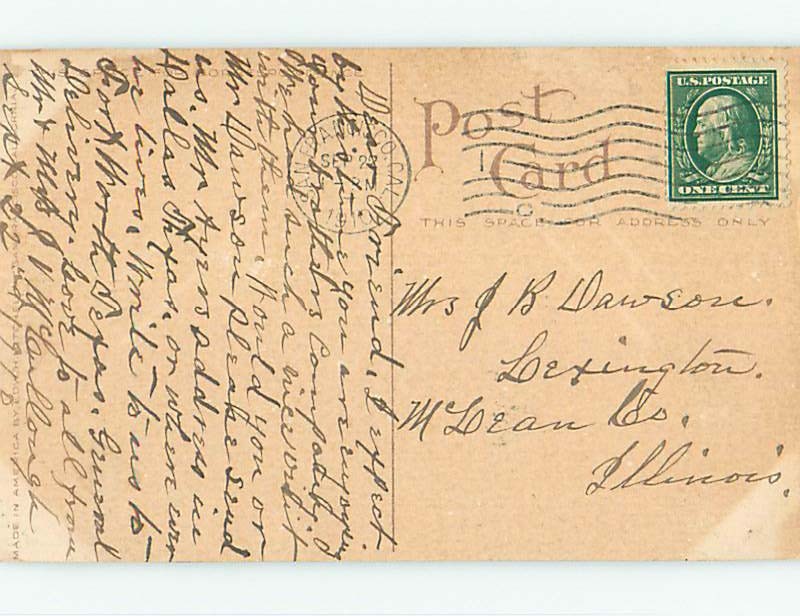 Dear Friend, I expect
by this time you are enjoying
your brothers company, I
had such a nice visit
with them. Would you or
Mr Dawson please send
us. Mr Ayers address in
Dallas Texas. or where ever
he lives. Write to us to
Fort Worth Texas. General
Delivery. Love to all from
Mr & Mrs J V McCullough
Sept 22
Post Card
THIS SPACE FOR ADDRESS ONLY
U.S. POSTAGE
ONE CENT
Mrs J B Dawson.
Lexington.
McLean Co.
Illinois.
MADE IN AMERICA BY